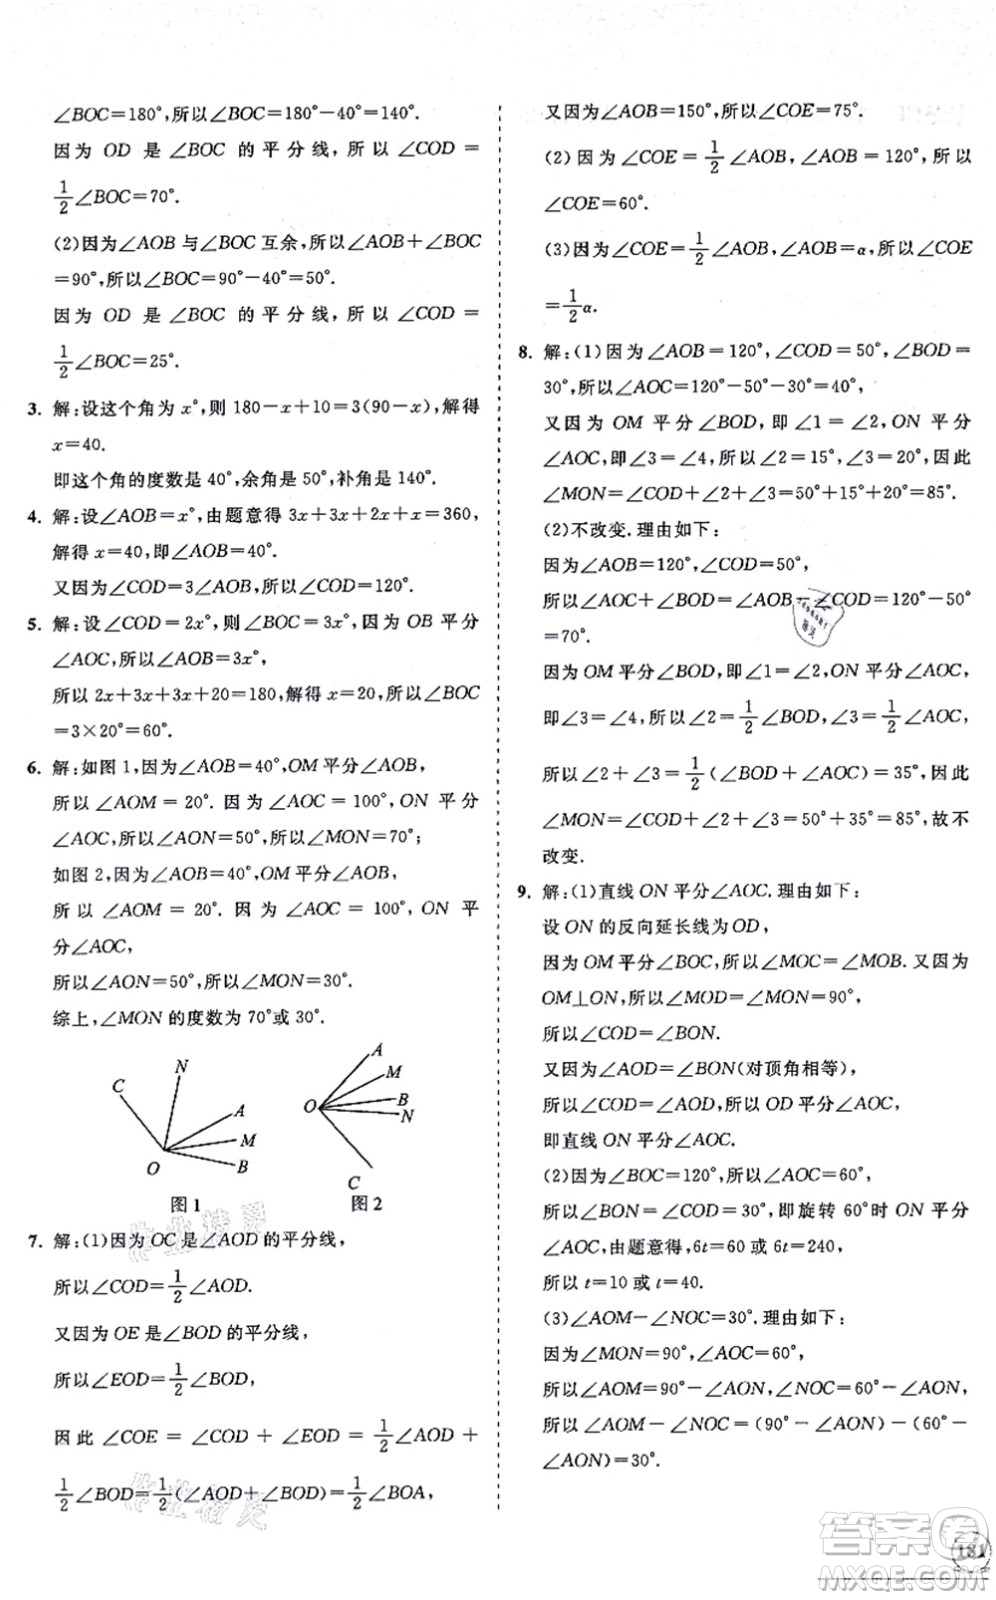 ∠BOC=180°,所以∠BOC=180°-40°=140°.
因为 OD 是∠BOC 的平分线,所以∠COD=
1/2∠BOC=70°.
(2)因为∠AOB 与∠BOC 互余,所以∠AOB+∠BOC
=90°,所以∠BOC=90°-40°=50°.
因为 OD 是∠BOC 的平分线,所以∠COD=
1/2∠BOC=25°.
3. 解:设这个角为 x°,则 180-x+10=3(90-x),解得
x=40.
即这个角的度数是40°,余角是50°,补角是140°.
4. 解:设∠AOB=x°,由题意得 3x+3x+2x+x=360,
解得 x=40,即∠AOB=40°.
又因为∠COD=3∠AOB,所以∠COD=120°.
5. 解:设∠COD=2x°,则∠BOC=3x°,因为 OB 平分
∠AOC,所以∠AOB=3x°,
所以 2x+3x+3x+20=180,解得 x=20,所以∠BOC
=3×20°=60°.
6. 解:如图1,因为∠AOB=40°,OM平分∠AOB,
所以∠AOM=20°. 因为∠AOC=100°,ON 平分
∠AOC,所以∠AON=50°,所以∠MON=70°;
如图2,因为∠AOB=40°,OM平分∠AOB,
所以∠AOM=20°. 因为∠AOC=100°,ON 平
分∠AOC,
所以∠AON=50°,所以∠MON=30°.
综上,∠MON的度数为70°或30°.
C N A M B O
图1
A M B N O C
图2
7. 解:(1)因为OC是∠AOD的平分线,
所以∠COD=1/2∠AOD.
又因为OE是∠BOD的平分线,
所以∠EOD=1/2∠BOD,
因此∠COE=∠COD+∠EOD=1/2∠AOD+
1/2∠BOD=1/2(∠AOD+∠BOD)=1/2∠BOA,
又因为∠AOB=150°,所以∠COE=75°.
(2)因为∠COE=1/2∠AOB,∠AOB=120°,所以
∠COE=60°.
(3)因为∠COE=1/2∠AOB,∠AOB=α,所以∠COE
=1/2α.
8. 解:(1)因为∠AOB=120°,∠COD=50°,∠BOD=
30°,所以∠AOC=120°-50°-30°=40°,
又因为 OM 平分∠BOD,即∠1=∠2,ON 平分
∠AOC,即∠3=∠4,所以∠2=15°,∠3=20°,因此
∠MON=∠COD+∠2+∠3=50°+15°+20°=85°.
(2)不改变.理由如下:
因为∠AOB=120°,∠COD=50°,
所以∠AOC+∠BOD=∠AOB-∠COD=120°-50°
=70°.
因为OM平分∠BOD,即∠1=∠2,ON平分∠AOC,
即∠3=∠4,所以∠2=1/2∠BOD,∠3=1/2∠AOC,
所以∠2+∠3=1/2(∠BOD+∠AOC)=35°,因此
∠MON=∠COD+∠2+∠3=50°+35°=85°,故不
改变.
9. 解:(1)直线ON平分∠AOC.理由如下:
设ON的反向延长线为OD,
因为OM平分∠BOC,所以∠MOC=∠MOB.又因为
OM⊥ON,所以∠MOD=∠MON=90°,
所以∠COD=∠BON.
又因为∠AOD=∠BON(对顶角相等),
所以∠COD=∠AOD,所以OD平分∠AOC,
即直线ON平分∠AOC.
(2)因为∠BOC=120°,所以∠AOC=60°,
所以∠BON=∠COD=30°,即旋转60°时ON平分
∠AOC,由题意得,6t=60或6t=240,
所以t=10或t=40.
(3)∠AOM-∠NOC=30°.理由如下:
因为∠MON=90°,∠AOC=60°,
所以∠AOM=90°-∠AON,∠NOC=60°-∠AON,
所以∠AOM-∠NOC=(90°-∠AON)-(60°-
∠AON)=30°.
作业精灵
作业精灵
答案圈
MXQE.COM
181